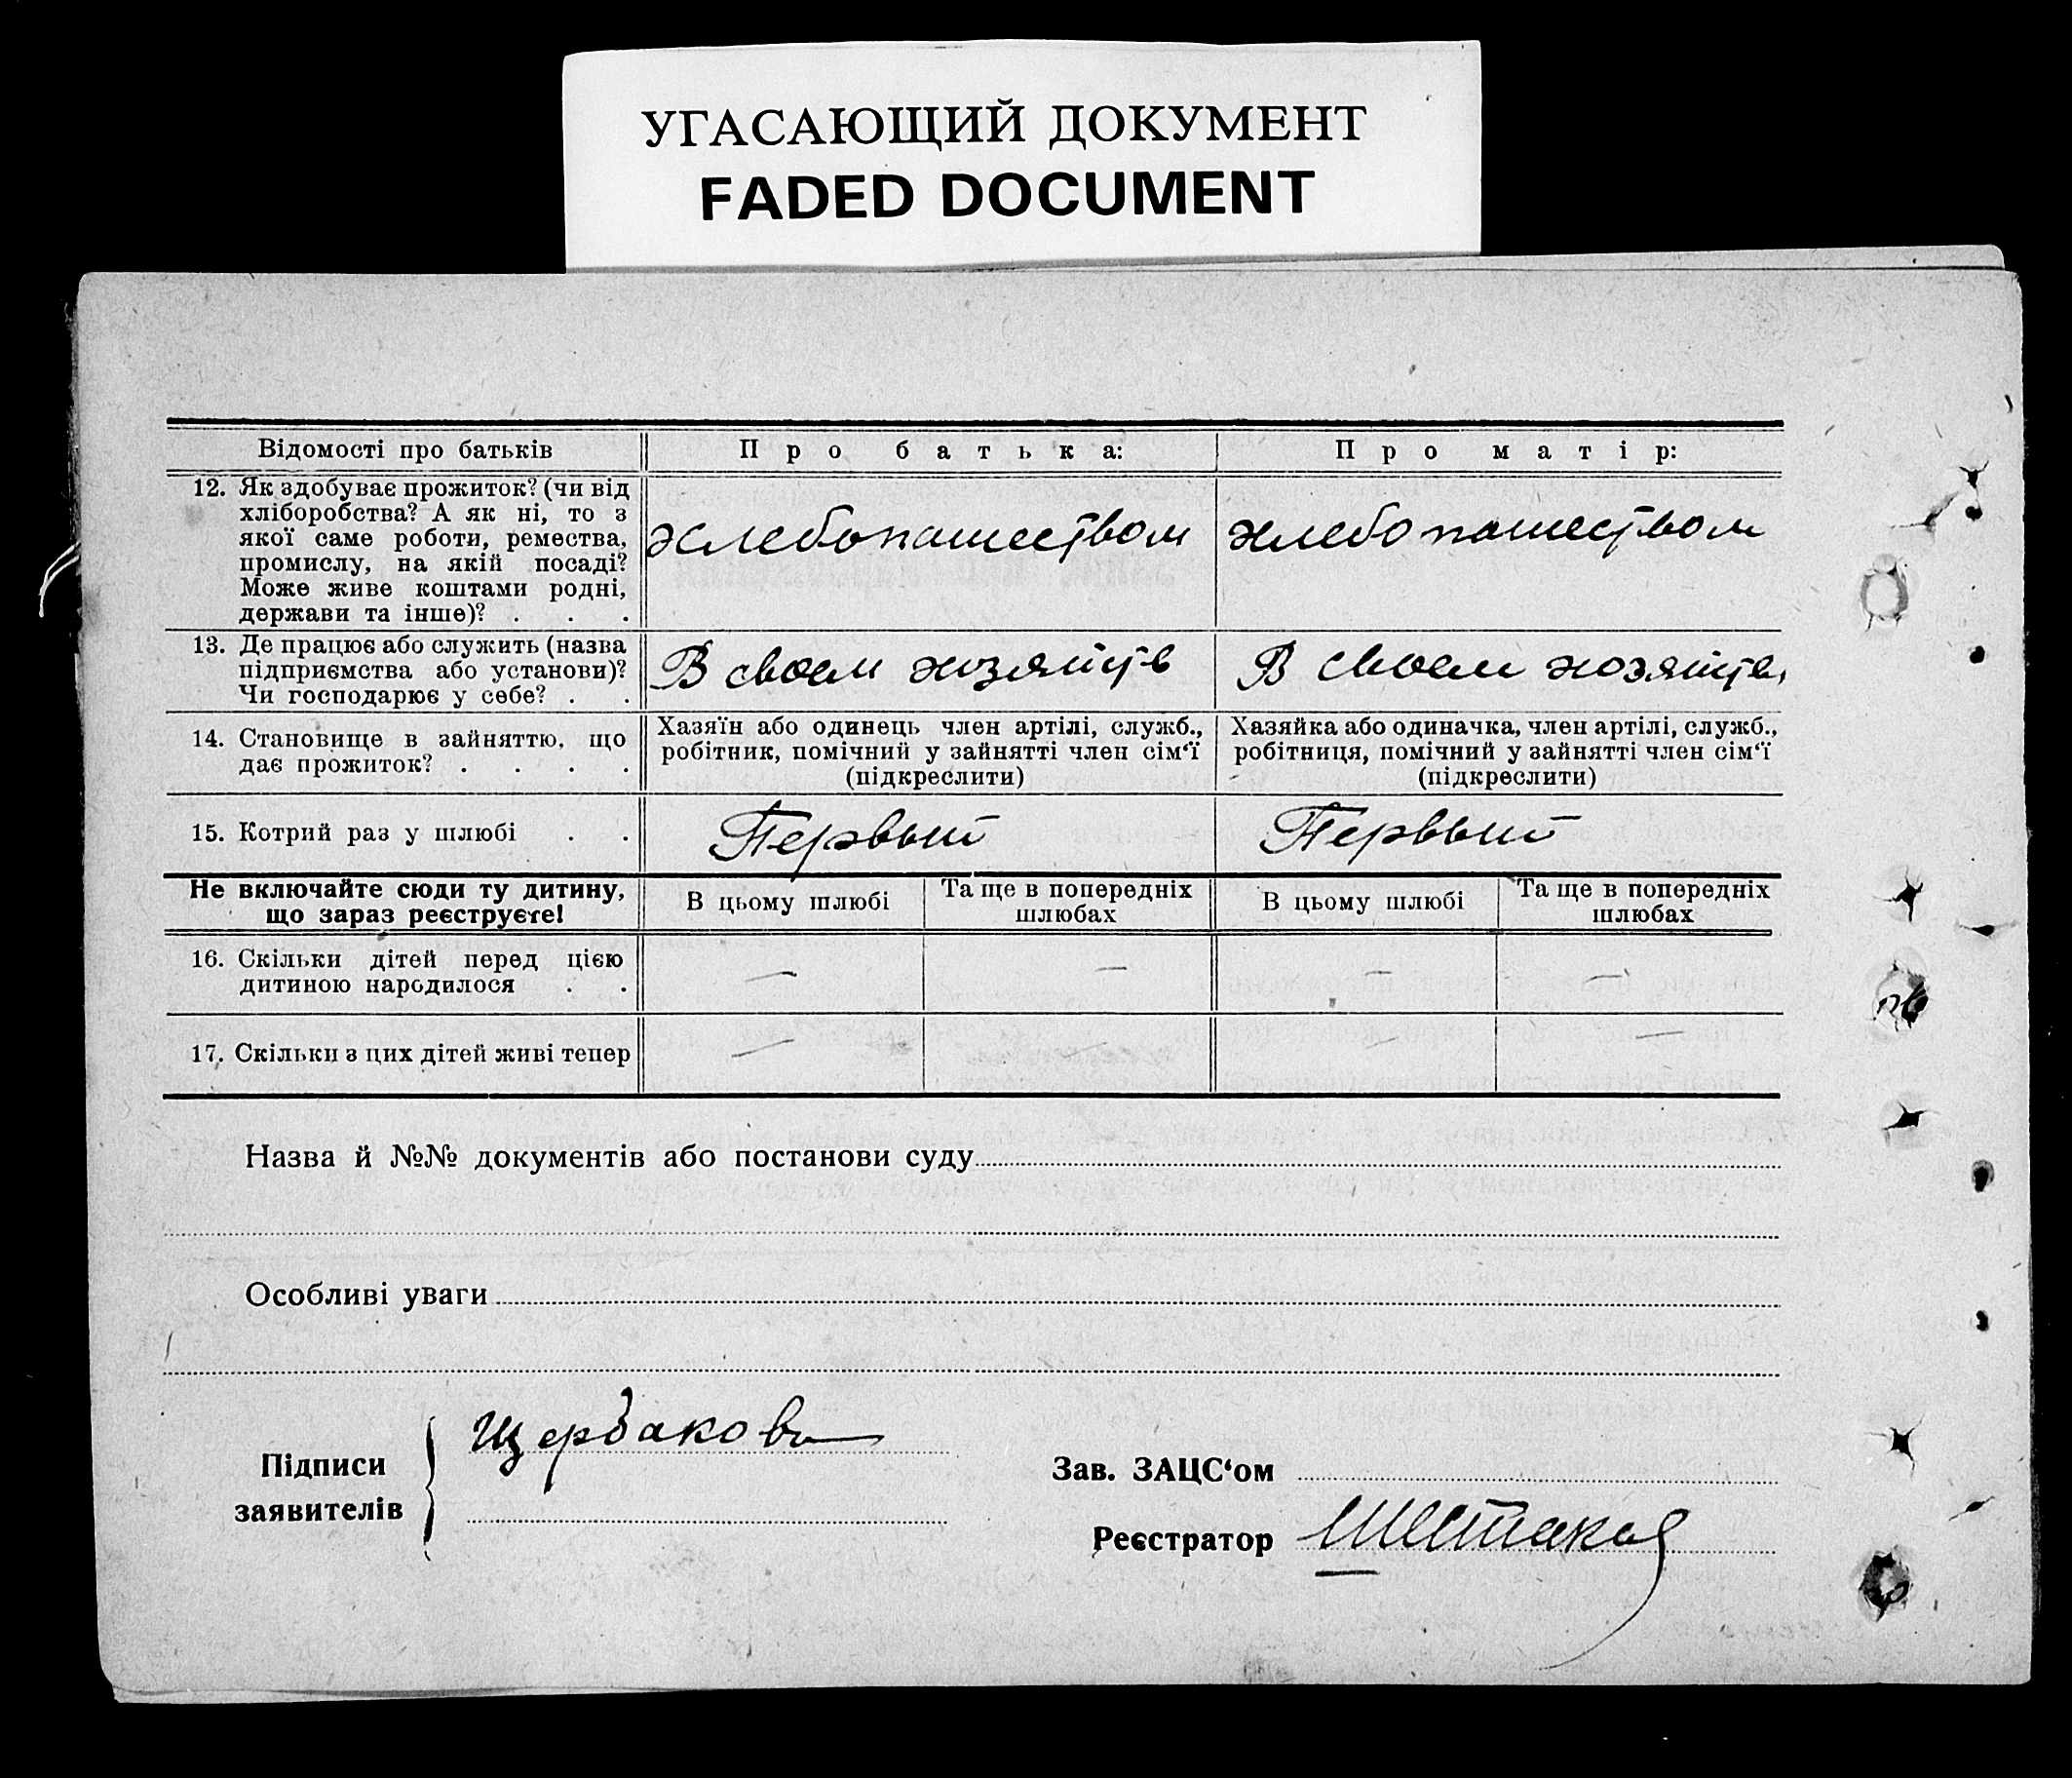 УГАСАЮЩИЙ ДОКУМЕНТ
FADED DOCUMENT
Відомості про батьків
Про батька:
Про матір:
12. Як здобуває прожиток? (чи від
хліборобства? А як ні, то з
якої саме роботи, ремества,
промислу, на якій посаді?
Може живе коштами родні,
держави та інше)? . . .
хлебопашеством
хлебопашеством
13. Де працює або служить (назва
підприємства або установи)?
Чи господарює у себе? . .
В своем хозяйств
В своем хозяйстве
14. Становище в зайняттю, що
дає прожиток? . . . .
Хазяїн або одинець член артілі, служб.,
робітник, помічний у зайнятті член сім‘ї
(підкреслити)
Хазяйка або одиначка, член артілі, служб.,
робітниця, помічний у зайнятті член сім‘ї
(підкреслити)
15. Котрий раз у шлюбі . .
Первый
Первый
Не включайте сюди ту дитину,
що зараз реєструєте!
В цьому шлюбі
Та ще в попередніх
шлюбах
В цьому шлюбі
Та ще в попередніх
шлюбах
16. Скільки дітей перед цією
дитиною народилося . .
— — — —
17. Скільки з цих дітей живі тепер
— — — —
Назва й №№ документів або постанови суду
Особливі уваги
Підписи
заявителів
Щербакова
Зав. ЗАЦС‘ом
Реєстратор